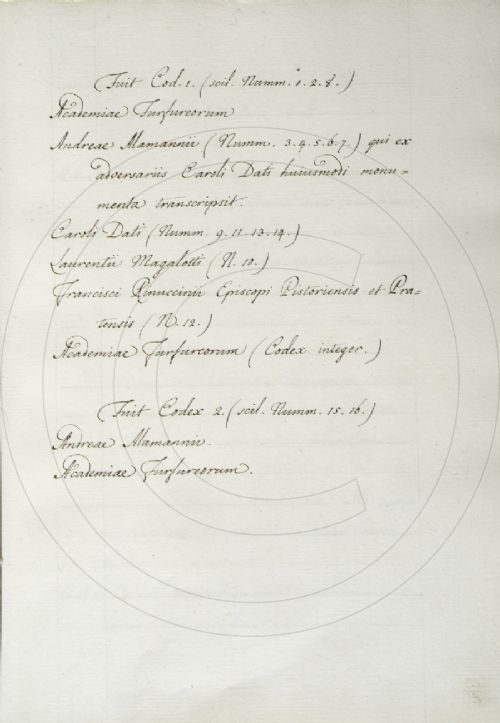 Fuit Cod. 1. (scil. Numm. 1. 2. 8.)
Academiae Furfureorum
Andreae Alamannii (Numm. 3. 4. 5. 6. 7.) qui ex
adversariis Caroli Dati huiusmodi monu-
menta transcripsit.
Caroli Dati (Numm. 9. 11. 13. 14.)
Laurentii Magalotti (N. 10.)
Francisci Rinuccinii Episcopi Pistoriensis et Pra-
tensis (N. 12.)
Academiae Furfureorum (Codex integer.)
Fuit Codex 2. (scil. Numm. 15. 16.)
Andreae Alamannii.
Academiae Furfureorum.